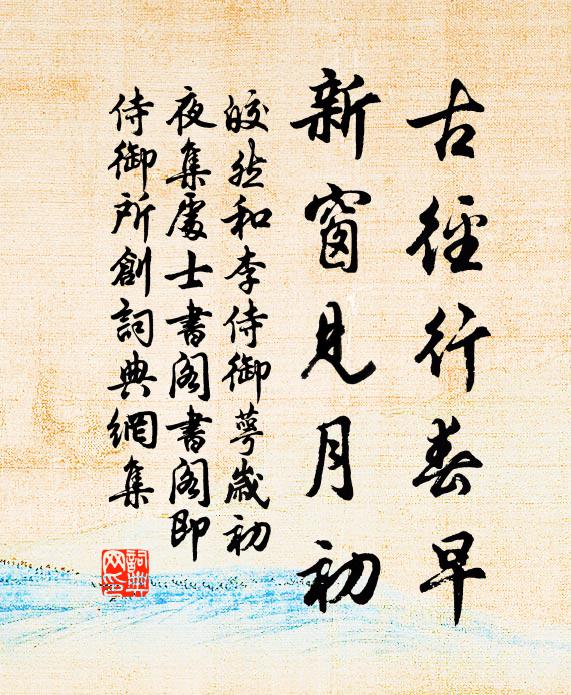 古徑行春早
新窗見月初
皎然和李侍御萼歲初
夜集處士書閣書閣即
侍御所創詞典網集
詞典網印